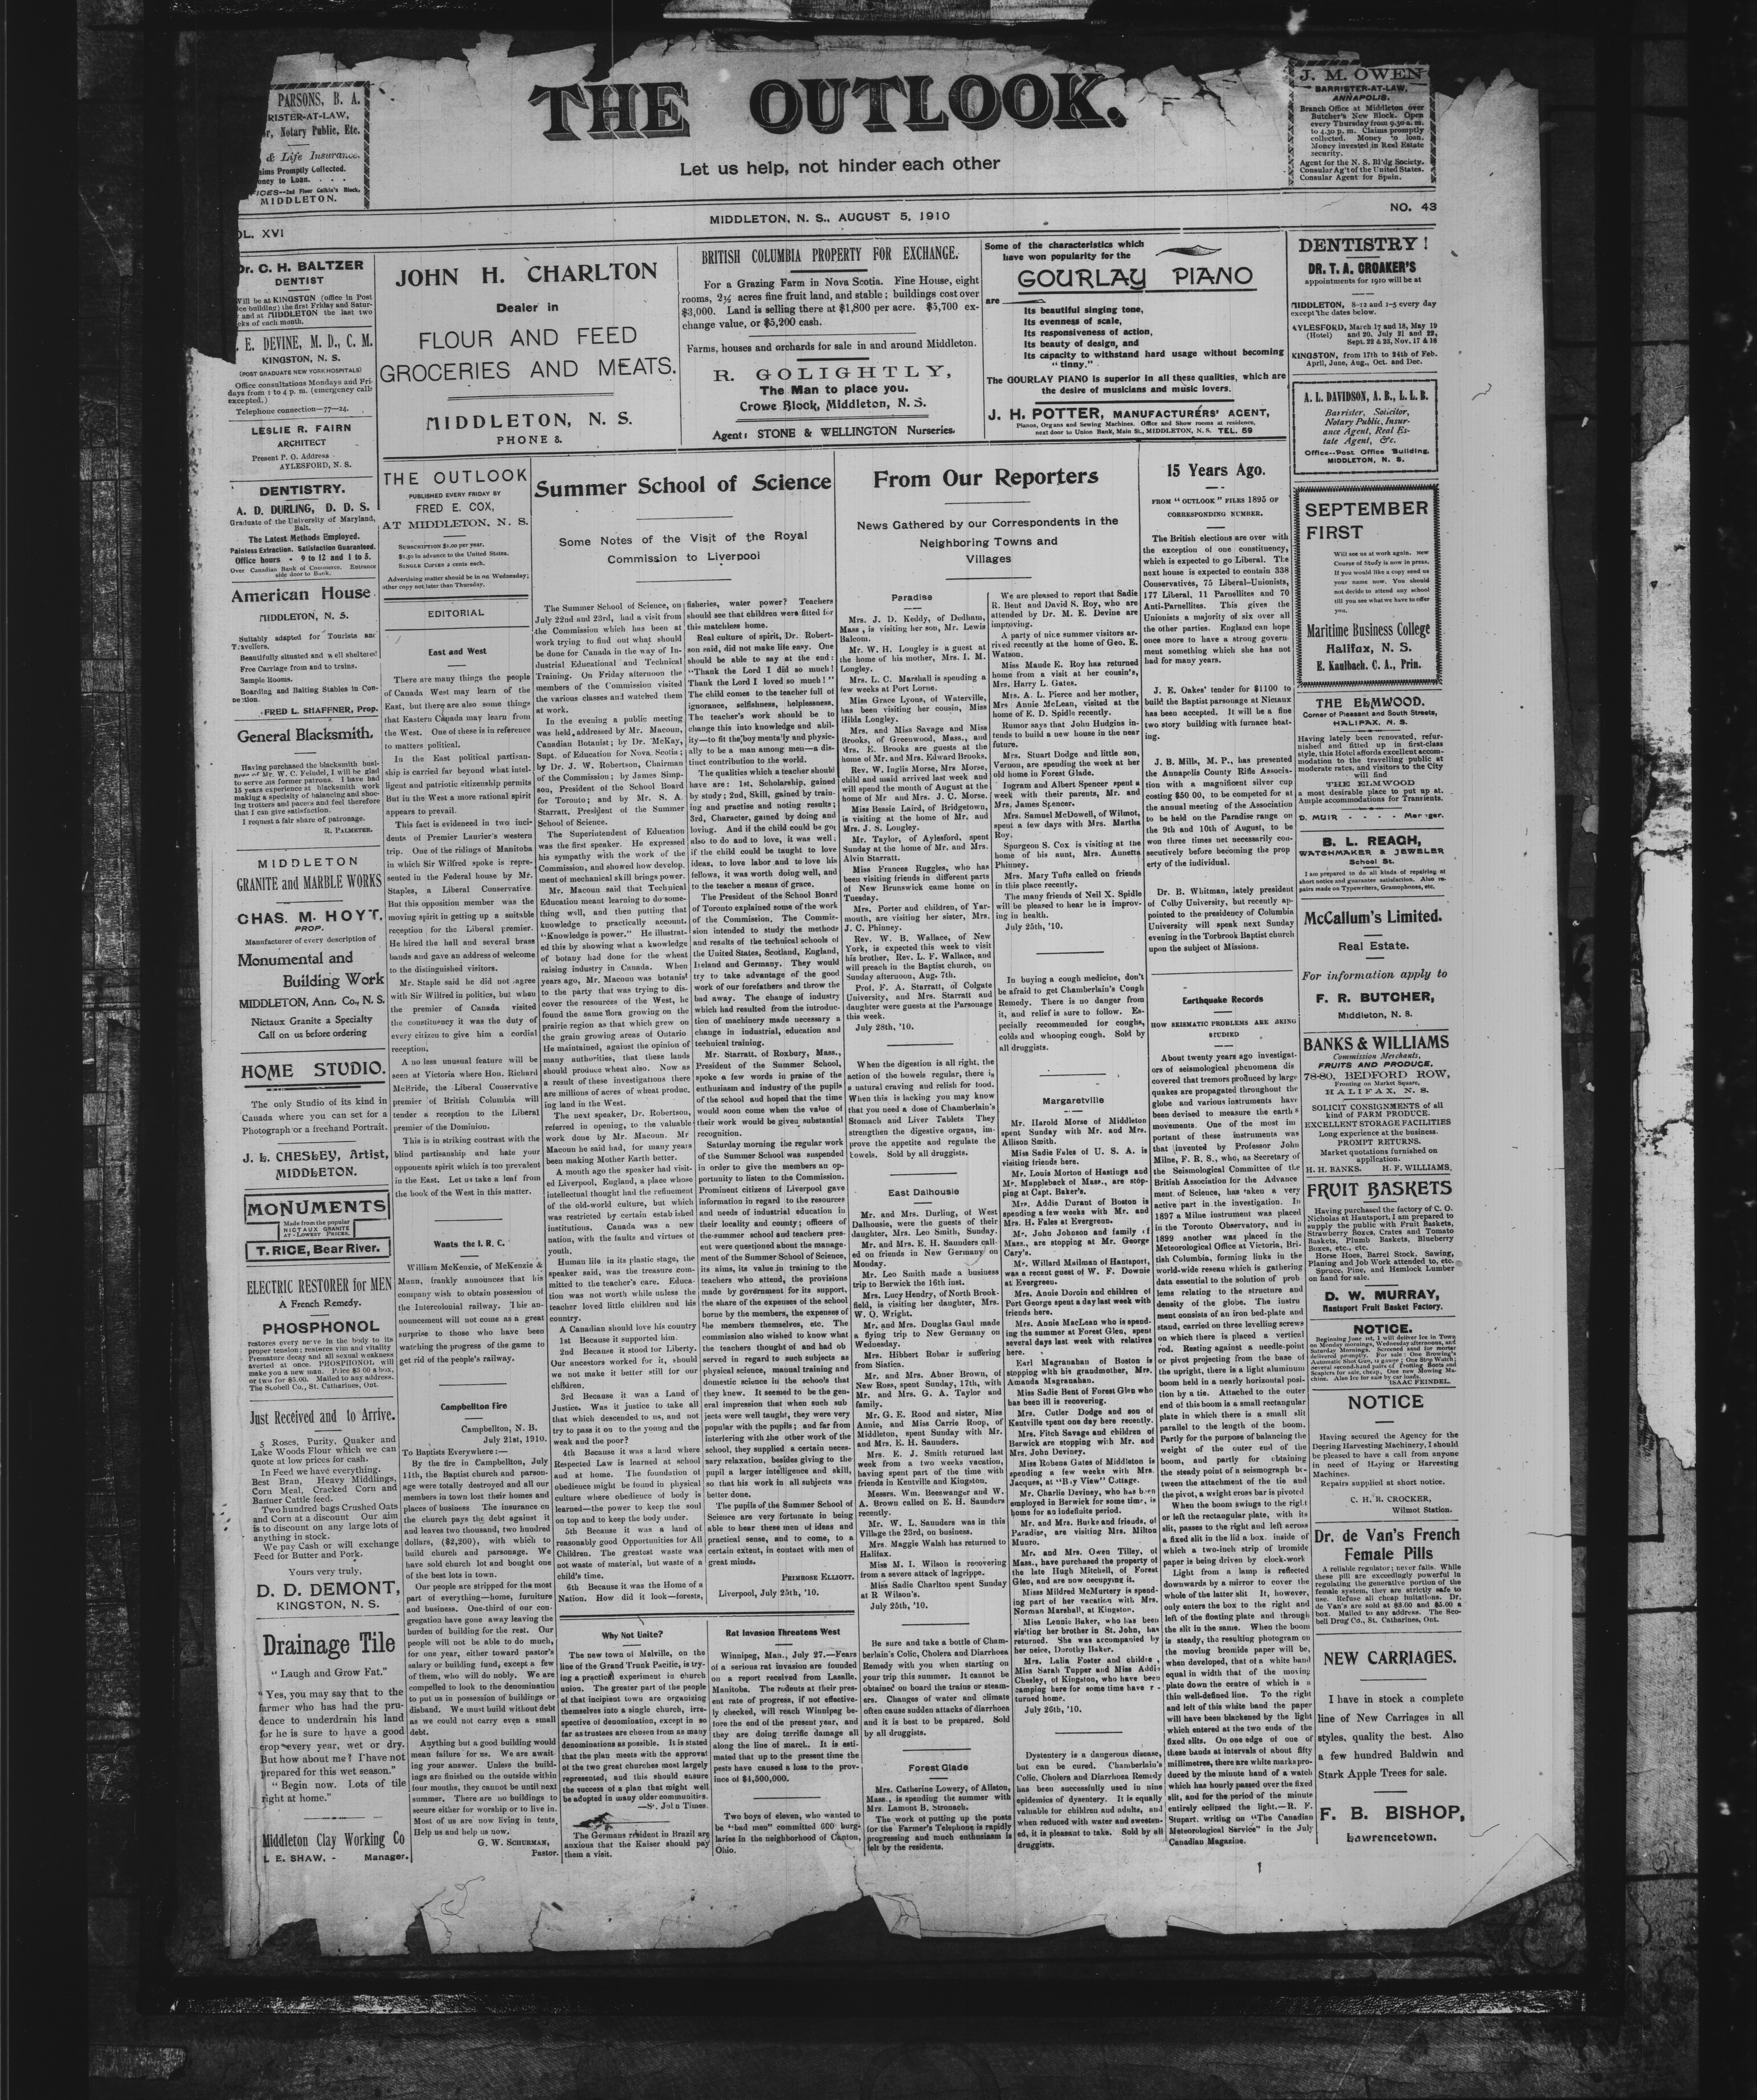 PARSONS, B. A.
RISTER-AT-LAW,
r, Notary Public, Etc.
& Life Insurance.
aims Promptly Collected.
oney to Loan. . . .
FICES--2nd Floor Calkin's Block,
MIDDLETON.
THE OUTLOOK.
Let us help, not hinder each other
J. M. OWEN
BARRISTER-AT-LAW,
ANNAPOLIS.
Branch Office at Middleton over
Butcher's New Block. Open
every Thursday from 9.30 a. m.
to 4.30 p. m. Claims promptly
collected. Money to loan.
Money invested in Real Estate
security.
Agent for the N. S. Bl'dg Society.
Consular Ag't of the United States.
Consular Agent for Spain.
OL. XVI
MIDDLETON, N. S., AUGUST 5, 1910
NO. 43
Dr. C. H. BALTZER
DENTIST
Will be at KINGSTON (office in Post
ice building) the first Friday and Satur-
and at MIDDLETON the last two
eks of each month.
. E. DEVINE, M. D., C. M.
KINGSTON, N. S.
(POST GRADUATE NEW YORK HOSPITALS)
Office consultations Mondays and Fri-
days from 1 to 4 p. m. (emergency calls
excepted.)
Telephone connection—77—24.
LESLIE R. FAIRN
ARCHITECT
Present P. O. Address -
AYLESFORD, N. S.
DENTISTRY.
A. D. DURLING, D. D. S.
Graduate of the University of Maryland,
Balt.
The Latest Methods Employed.
Painless Extraction. Satisfaction Guaranteed.
Office hours - 9 to 12 and 1 to 5.
Over Canadian Bank of Commerce. Entrance
side door to Bank.
American House
MIDDLETON, N. S.
Suitably adapted for Tourists and
Travellers.
Beautifully situated and well sheltered
Free Carriage from and to trains.
Sample Rooms.
Boarding and Baiting Stables in Con-
nection.
FRED L. SHAFFNER, Prop.
General Blacksmith.
Having purchased the blacksmith busi-
ness of Mr. W. C. Feindel, I will be glad
to serve his former patrons. I have had
15 years experience at blacksmith work
making a specialty of balancing and shoe-
ing trotters and pacers and feel therefore
that I can give satisfaction.
I request a fair share of patronage.
R. PALMETER.
MIDDLETON
GRANITE and MARBLE WORKS
CHAS. M. HOYT,
PROP.
Manufacturer of every description of
Monumental and
Building Work
MIDDLETON, Ann. Co., N. S.
Nictaux Granite a Specialty
Call on us before ordering
HOME STUDIO.
The only Studio of its kind in
Canada where you can set for a
Photograph or a freehand Portrait.
J. L. CHESLEY, Artist,
MIDDLETON.
MONUMENTS
Made from the popular
NICTAUX GRANITE
AT - LOWEST PRICES.
T. RICE, Bear River.
ELECTRIC RESTORER for MEN
A French Remedy.
PHOSPHONOL
restores every nerve in the body to its
proper tension; restores vim and vitality
Premature decay and all sexual weakness
averted at once. PHOSPHONOL will
make you a new man. Price $3 00 a box,
or two for $5.00. Mailed to any address.
The Scobell Co., St. Catharines, Ont.
Just Received and to Arrive.
5 Roses, Purity, Quaker and
Lake Woods Flour which we can
quote at low prices for cash.
In Feed we have everything.
Best Bran, Heavy Middlings,
Corn Meal, Cracked Corn and
Banner Cattle feed.
Two hundred bags Crushed Oats
and Corn at a discount Our aim
is to discount on any large lots of
anything in stock.
We pay Cash or will exchange
Feed for Butter and Pork.
Yours very truly,
D. D. DEMONT,
KINGSTON, N. S.
Drainage Tile
"Laugh and Grow Fat."
"Yes, you may say that to the
farmer who has had the pru-
dence to underdrain his land
for he is sure to have a good
crop every year, wet or dry.
But how about me! I have not
prepared for this wet season."
"Begin now. Lots of tile
right at home."
Middleton Clay Working Co
L E. SHAW, - Manager.
JOHN H. CHARLTON
Dealer in
FLOUR AND FEED
GROCERIES AND MEATS.
MIDDLETON, N. S.
PHONE 8.
BRITISH COLUMBIA PROPERTY FOR EXCHANGE.
For a Grazing Farm in Nova Scotia. Fine House, eight
rooms, 2½ acres fine fruit land, and stable; buildings cost over
$3,000. Land is selling there at $1,800 per acre. $5,700 ex-
change value, or $5,200 cash.
Farms, houses and orchards for sale in and around Middleton.
R. GOLIGHTLY,
The Man to place you.
Crowe Block, Middleton, N. S.
Agent: STONE & WELLINGTON Nurseries.
Some of the characteristics which
have won popularity for the
GOURLAY PIANO
are
Its beautiful singing tone,
Its evenness of scale,
Its responsiveness of action,
Its beauty of design, and
Its capacity to withstand hard usage without becoming
"tinny."
The GOURLAY PIANO is superior in all these qualities, which are
the desire of musicians and music lovers.
J. H. POTTER, MANUFACTURERS' AGENT,
Pianos, Organs and Sewing Machines. Office and Show rooms at residence,
next door to Union Bank, Main St., MIDDLETON, N. S. TEL. 59
THE OUTLOOK
PUBLISHED EVERY FRIDAY BY
FRED E. COX,
AT MIDDLETON, N. S.
SUBSCRIPTION $1.00 per year.
$1.50 in advance to the United States.
SINGLE COPIES 2 cents each.
Advertising matter should be in on Wednesday;
other copy not later than Thursday.
EDITORIAL
East and West
There are many things the people
of Canada West may learn of the
East, but there are also some things
that Eastern Canada may learn from
the West. One of these is in reference
to matters political.
In the East political partisan-
ship is carried far beyond what intel-
ligent and patriotic citizenship permits
But in the West a more rational spirit
appears to prevail.
This fact is evidenced in two inci-
dents of Premier Laurier's western
trip. One of the ridings of Manitoba
in which Sir Wilfred spoke is repre-
sented in the Federal house by Mr.
Staples, a Liberal Conservative.
But this opposition member was the
moving spirit in getting up a suitable
reception for the Liberal premier.
He hired the hall and several brass
bands and gave an address of welcome
to the distinguished visitors.
Mr. Staple said he did not agree
with Sir Wilfred in politics, but when
the premier of Canada visited
the constituency it was the duty of
every citizen to give him a cordial
reception.
A no less unusual feature will be
seen at Victoria where Hon. Richard
McBride, the Liberal Conservative
premier of British Columbia will
tender a reception to the Liberal
premier of the Dominion.
This is in striking contrast with the
blind partisanship and hate your
opponents spirit which is too prevalent
in the East. Let us take a leaf from
the book of the West in this matter.
Wants the I. R. C.
William McKenzie, of McKenzie &
Mann, frankly announces that his
company wish to obtain possession of
the Intercolonial railway. This an-
nouncement will not come as a great
surprise to those who have been
watching the progress of the game to
get rid of the people's railway.
Campbellton Fire
Campbellton, N. B.
July 21st, 1910.
To Baptists Everywhere:—
By the fire in Campbellton, July
11th, the Baptist church and parson-
age were totally destroyed and all our
members in town lost their homes and
places of business The insurance on
the church pays the debt against it
and leaves two thousand, two hundred
dollars, ($2,200), with which to
build church and parsonage. We
have sold church lot and bought one
of the best lots in town.
Our people are stripped for the most
part of everything—home, furniture
and business. One-third of our con-
gregation have gone away leaving the
burden of building for the rest. Our
people will not be able to do much,
for one year, either toward pastor's
salary or building fund, except a few
of them, who will do nobly. We are
compelled to look to the denomination
to put us in possession of buildings or
disband. We must build without debt
as we could not carry even a small
debt.
Anything but a good building would
mean failure for us. We are await-
ing your answer. Unless the build-
ings are finished on the outside within
four months, they cannot be until next
summer. There are no buildings to
secure either for worship or to live in.
Most of us are now living in tents.
Help us and help us now.
G. W. SCHURMAN,
Pastor.
Summer School of Science
Some Notes of the Visit of the Royal
Commission to Liverpool
The Summer School of Science, on
July 22nd and 23rd, had a visit from
the Commission which has been at
work trying to find out what should
be done for Canada in the way of In-
dustrial Educational and Technical
Training. On Friday afternoon the
members of the Commission visited
the various classes and watched them
at work.
In the evening a public meeting
was held, addressed by Mr. Macoun,
Canadian Botanist; by Dr. McKay,
Supt. of Education for Nova Scotia;
by Dr. J. W. Robertson, Chairman
of the Commission; by James Simp-
son, President of the School Board
for Toronto; and by Mr. S. A.
Starratt, President of the Summer
School of Science.
The Superintendent of Education
was the first speaker. He expressed
his sympathy with the work of the
Commission, and showed how develop-
ment of mechanical skill brings power.
Mr. Macoun said that Technical
Education meant learning to do some-
thing well, and then putting that
knowledge to practically account.
"Knowledge is power." He illustrat-
ed this by showing what a knowledge
of botany had done for the wheat
raising industry in Canada. When
years ago, Mr. Macoun was botanist
to the party that was trying to dis-
cover the resources of the West, he
found the same flora growing on the
prairie region as that which grew on
the grain growing areas of Ontario
He maintained, against the opinion of
many authorities, that these lands
should produce wheat also. Now as
a result of these investigations there
are millions of acres of wheat produc.
ing land in the West.
The next speaker, Dr. Robertson,
referred in opening, to the valuable
work done by Mr. Macoun. Mr
Macoun he said had, for many years
been making Mother Earth better.
A mouth ago the speaker had visit-
ed Liverpool, England, a place whose
intellectual thought had the refinement
of the old-world culture, but which
was restricted by certain established
institutions. Canada was a new
nation, with the faults and virtues of
youth.
Human life in its plastic stage, the
speaker said, was the treasure com-
mitted to the teacher's care. Educa-
tion was not worth while unless the
teacher loved little children and his
country.
A Canadian should love his country
1st Because it supported him.
2nd Because it stood for Liberty.
Our ancestors worked for it, should
we not make it better still for our
children.
3rd Because it was a Land of
Justice. Was it justice to take all
that which descended to us, and not
try to pass it on to the young and the
weak and the poor?
4th Because it was a land where
Respected Law is learned at school
and at home. The foundation of
obedience might be found in physical
culture where obedience of body is
learned—the power to keep the soul
on top and to keep the body under.
5th Because it was a land of
reasonably good Opportunities for All
Children. The greatest waste was
not waste of material, but waste of a
child's time.
6th Because it was the Home of a
Nation. How did it look—forests,
fisheries, water power? Teachers
should see that children were fitted for
this matchless home.
Real culture of spirit, Dr. Robert-
son said, did not make life easy. One
should be able to say at the end:
"Thank the Lord I did so much!
Thank the Lord I loved so much!"
The child comes to the teacher full of
ignorance, selfishness, helplessness.
The teacher's work should be to
change this into knowledge and abil-
ity—to fit the boy mentally and physic-
ally to be a man among men—a dis-
tinct contribution to the world.
The qualities which a teacher should
have are: 1st, Scholarship, gained
by study; 2nd, Skill, gained by train-
ing and practise and noting results;
3rd, Character, gained by doing and
loving. And if the child could be got
also to do and to love, it was well;
if the child could be taught to love
ideas, to love labor and to love his
fellows, it was worth doing well, and
to the teacher a means of grace.
The President of the School Board
of Toronto explained some of the work
of the Commission. The Commis-
sion intended to study the methods
and results of the technical schools of
the United States, Scotland, England,
Ireland and Germany. They would
try to take advantage of the good
work of our forefathers and throw the
bad away. The change of industry
which had resulted from the introduc-
tion of machinery made necessary a
change in industrial, education and
technical training.
Mr. Starratt, of Roxbury, Mass.,
President of the Summer School,
spoke a few words in praise of the
enthusiasm and industry of the pupils
of the school and hoped that the time
would soon come when the value of
their work would be given substantial
recognition.
Saturday morning the regular work
of the Summer School was suspended
in order to give the members an op-
portunity to listen to the Commission.
Prominent citizens of Liverpool gave
information in regard to the resources
and needs of industrial education in
their locality and county; officers of
the summer school and teachers pres-
ent were questioned about the manage-
ment of the Summer School of Science,
its aims, its value in training to the
teachers who attend, the provisions
made by government for its support,
the share of the expenses of the school
borne by the members, the expenses of
the members themselves, etc. The
commission also wished to know what
the teachers thought of and had ob
served in regard to such subjects as
physical science, manual training and
domestic science in the schools that
they knew. It seemed to be the gen-
eral impression that when such sub
jects were well taught, they were very
popular with the pupils; and far from
interfering with the other work of the
school, they supplied a certain neces-
sary relaxation, besides giving to the
pupil a larger intelligence and skill,
so that his work in all subjects was
better done.
The pupils of the Summer School of
Science are very fortunate in being
able to hear these men of ideas and
practical sense, and to come, to a
certain extent, in contact with men of
great minds.
PRIMROSE ELLIOTT.
Liverpool, July 25th, '10.
Why Not Unite?
The new town of Melville, on the
line of the Grand Trunk Pacific, is try-
ing a practical experiment in church
union. The greater part of the people
of that incipient town are organizing
themselves into a single church, irre-
spective of denomination, except in so
far as trustees are chosen from as many
denominations as possible. It is stated
that the plan meets with the approval
of the two great churches most largely
represented, and this should ensure
the success of a plan that might well
be adopted in many older communities.
—St. John Times.
The Germans resident in Brazil are
anxious that the Kaiser should pay
them a visit.
Rat Invasion Threatens West
Winnipeg, Man., July 27.—Fears
of a serious rat invasion are founded
on a report received from Lasalle,
Manitoba. The rodents at their pres-
ent rate of progress, if not effective-
ly checked, will reach Winnipeg be-
fore the end of the present year, and
they are doing terrific damage all
along the line of march. It is esti-
mated that up to the present time the
pests have caused a loss to the prov-
ince of $1,500,000.
Two boys of eleven, who wanted to
be "bad men" committed 600 burg-
laries in the neighborhood of Canton,
Ohio.
From Our Reporters
News Gathered by our Correspondents in the
Neighboring Towns and
Villages
Paradise
Mrs. J. D. Keddy, of Dedham,
Mass, is visiting her son, Mr. Lewis
Balcom.
Mr. W. H. Longley is a guest at
the home of his mother, Mrs. I. M.
Longley.
Mrs. L. C. Marshall is spending a
few weeks at Port Lorne.
Miss Grace Lyons, of Waterville,
has been visiting her cousin, Miss
Hilda Longley.
Mrs. and Miss Savage and Miss
Brooks, of Greenwood, Mass., and
Mrs. E. Brooks are guests at the
home of Mr. and Mrs. Edward Brooks.
Rev. W. Inglis Morse, Mrs Morse,
child and maid arrived last week and
will spend the month of August at the
home of Mr and Mrs. J. C. Morse.
Miss Bessie Laird, of Bridgetown,
is visiting at the home of Mr. and
Mrs. J. S. Longley.
Mr. Taylor, of Aylesford, spent
Sunday at the home of Mr. and Mrs.
Alvin Starratt.
Miss Frances Ruggles, who has
been visiting friends in different parts
of New Brunswick came home on
Tuesday.
Mrs. Porter and children, of Yar-
mouth, are visiting her sister, Mrs.
J. C. Phinney.
Rev. W. B. Wallace, of New
York, is expected this week to visit
his brother, Rev. L. F. Wallace, and
will preach in the Baptist church, on
Sunday afternoon, Aug. 7th.
Prof. F. A. Starratt, of Colgate
University, and Mrs. Starratt and
daughter were guests at the Parsonage
this week.
July 28th, '10.
When the digestion is all right, the
action of the bowels regular, there is
a natural craving and relish for food.
When this is lacking you may know
that you need a dose of Chamberlain's
Stomach and Liver Tablets They
strengthen the digestive organs, im-
prove the appetite and regulate the
bowels. Sold by all druggists.
East Dalhousie
Mr. and Mrs. Durling, of West
Dalhousie, were the guests of their
daughter, Mrs. Leo Smith, Sunday.
Mr. and Mrs. E. H. Saunders call-
ed on friends in New Germany on
Monday.
Mr. Leo Smith made a business
trip to Berwick the 16th inst.
Mrs. Lucy Hendry, of North Brook-
field, is visiting her daughter, Mrs.
W. O. Wright.
Mr. and Mrs. Douglas Gaul made
a flying trip to New Germany on
Wednesday.
Mrs. Hibbert Robar is suffering
from Siatica.
Mr. and Mrs. Abner Brown, of
New Ross, spent Sunday, 17th, with
Mr. and Mrs. G. A. Taylor and
family.
Mr. G. E. Rood and sister, Miss
Annie, and Miss Carrie Roop, of
Middleton, spent Sunday with Mr.
and Mrs. E. H. Saunders.
Mrs. E. J. Smith returned last
week from a two weeks vacation,
having spent part of the time with
friends in Kentville and Kingston.
Messrs. Wm. Beeswanger and W.
A. Brown called on E. H. Saunders
recently.
Mr. W. L. Saunders was in this
Village the 23rd, on business.
Mrs. Maggie Walsh has returned to
Halifax.
Miss M. I. Wilson is recovering
from a severe attack of lagrippe.
Miss Sadie Charlton spent Sunday
at R Wilson's.
July 25th, '10.
Be sure and take a bottle of Cham-
berlain's Colic, Cholera and Diarrhoea
Remedy with you when starting on
your trip this summer. It cannot be
obtained on board the trains or steam-
ers. Changes of water and climate
often cause sudden attacks of diarrhoea
and it is best to be prepared. Sold
by all druggists.
Forest Glade
Mrs. Catherine Lowery, of Allston,
Mass., is spending the summer with
Mrs. Lamont B. Stronach.
The work of putting up the posts
for the Farmer's Telephone is rapidly
progressing and much enthusiasm is
felt by the residents.
We are pleased to report that Sadie
R. Bent and David S. Roy, who are
attended by Dr. M. E. Devine are
improving.
A party of nice summer visitors ar-
rived recently at the home of Geo. E.
Watson.
Miss Maude E. Roy has returned
home from a visit at her cousin's,
Mrs. Harry L. Gates.
Mrs. A. L. Pierce and her mother,
Mrs Annie McLean, visited at the
home of E. D. Spidle recently.
Rumor says that John Hudgins in-
tends to build a new house in the near
future.
Mrs. Stuart Dodge and little son,
Vernon, are spending the week at her
old home in Forest Glade.
Ingram and Albert Spencer spent a
week with their parents, Mr. and
Mrs. James Spencer.
Mrs. Samuel McDowell, of Wilmot,
spent a few days with Mrs. Martha
Roy.
Spurgeon S. Cox is visiting at the
home of his aunt, Mrs. Annetta
Phinney.
Mrs. Mary Tufts called on friends
in this place recently.
The many friends of Neil X. Spidle
will be pleased to hear he is improv-
ing in health.
July 25th, '10.
In buying a cough medicine, don't
be afraid to get Chamberlain's Cough
Remedy. There is no danger from
it, and relief is sure to follow. Es-
pecially recommended for coughs,
colds and whooping cough. Sold by
all druggists.
Margaretville
Mr. Harold Morse of Middleton
spent Sunday with Mr. and Mrs.
Allison Smith.
Miss Sadie Fales of U. S. A. is
visiting friends here.
Mr. Louis Morton of Hastings and
Mr. Mappleback of Mass., are stop-
ping at Capt. Baker's.
Mrs. Addie Durant of Boston is
spending a few weeks with Mr. and
Mrs. H. Fales at Evergreen.
Mr. John Johnson and family of
Mass., are stopping at Mr. George
Cary's.
Mr. Willard Mailman of Hantsport,
was a recent guest of W. F. Downie
at Evergreen.
Mrs. Annie Dorcin and children of
Port George spent a day last week with
friends here.
Mrs. Annie MacLean who is spend-
ing the summer at Forest Glen, spent
several days last week with relatives
here.
Earl Magranahan of Boston is
stopping with his grandmother, Mrs.
Amanda Magranahan.
Miss Sadie Bent of Forest Glen who
has been ill is recovering.
Mrs. Cutler Dodge and son of
Kentville spent one day here recently.
Mrs. Fitch Savage and children of
Berwick are stopping with Mr. and
Mrs. John Deviney.
Miss Robena Gates of Middleton is
spending a few weeks with Mrs.
Jacques, at "Bay View" Cottage.
Mr. Charlie Deviney, who has been
employed in Berwick for some time, is
home for an indefinite period.
Mr. and Mrs. Burke and friends, of
Paradise, are visiting Mrs. Milton
Munro.
Mr. and Mrs. Owen Tilley, of
Mass., have purchased the property of
the late Hugh Mitchell, of Forest
Glen, and are now occupying it.
Misss Mildred McMurtery is spend-
ing part of her vacation with Mrs.
Norman Marshall, at Kingston.
Miss Lennie Baker, who has been
visiting her brother in St. John, has
returned. She was accompanied by
her neice, Dorothy Baker.
Mrs. Lalia Foster and childre,
Miss Sarah Tupper and Miss Addie
Chesley, of Kingston, who have been
camping here for some time have r -
turned home.
July 26th, '10.
Dystentery is a dangerous disease,
but can be cured. Chamberlain's
Colic, Cholera and Diarrhoea Remedy
has been successfully used in nine
epidemics of dysentery. It is equally
valuable for children and adults, and
when reduced with water and sweeten-
ed, it is pleasant to take. Sold by all
druggists.
15 Years Ago.
FROM "OUTLOOK" FILES 1895 OF
CORRESPONDING NUMBER.
The British elections are over with
the exception of one constituency,
which is expected to go Liberal. The
next house is expected to contain 338
Conservatives, 75 Liberal-Unionists,
177 Liberal, 11 Parnellites and 70
Anti-Parnellites. This gives the
Unionists a majority of six over all
the other parties. England can hope
once more to have a strong govern-
ment something which she has not
had for many years.
J. E. Oakes' tender for $1100 to
build the Baptist parsonage at Nictaux
has been accepted. It will be a fine
two story building with furnace heat-
ing.
J. B. Mills, M. P., has presented
the Annapolis County Rifle Associa-
tion with a magnificent silver cup
costing $50 00, to be competed for at
the annual meeting of the Association
to be held on the Paradise range on
the 9th and 10th of August, to be
won three times net necessarily con-
secutively before becoming the prop
erty of the individual.
Dr. B. Whitman, lately president
of Colby University, but recently ap-
pointed to the presidency of Columbia
University will speak next Sunday
evening in the Torbrook Baptist church
upon the subject of Missions.
Earthquake Records
HOW SEISMATIC PROBLEMS ARE BEING
STUDIED
About twenty years ago investigat-
ors of seismological phenomena dis
covered that tremors produced by large
quakes are propagated throughout the
globe and various instruments have
been devised to measure the earth s
movements. One of the most im
portant of these instruments was
that invented by Professor John
Milne, F. R. S., who, as Secretary of
the Seismological Committee of the
British Association for the Advance
ment. of Science, has taken a very
active part in the investigation. In
1897 a Milne instrument was placed
in the Toronto Observatory, and in
1899 another was placed in the
Meteorological Office at Victoria, Bri-
tish Columbia, forming links in the
world-wide reseau which is gathering
data essential to the solution of prob
lems relating to the structure and
density of the globe. The instru
ment consists of an iron bed-plate and
stand, carried on three levelling screws
on which there is placed a vertical
rod. Resting against a needle-point
or pivot projecting from the base of
the upright, there is a light aluminum
boom held in a nearly horizontal posi-
tion by a tie. Attached to the outer
end of this boom is a small rectangular
plate in which there is a small slit
parallel to the length of the boom.
Partly for the purpose of balancing the
weight of the outer end of the
boom, and partly for obtaining
the steady point of a seismograph be-
tween the attachment of the tie and
the pivot, a weight cross bar is pivoted
When the boom swings to the right
or left the rectangular plate, with its
slit, passes to the right and left across
a fixed slit in the lid a box. inside of
which a two-inch strip of bromide
paper is being driven by clock-work
Light from a lamp is reflected
downwards by a mirror to cover the
whole of the latter slit It, however,
only enters the box to the right and
left of the floating plate and through
the slit in the same. When the boom
is steady, the resulting photograph on
the moving bromide paper will be,
when developed, that of a white band
equal in width that of the moving
plate down the centre of which is a
this well-defined line. To the right
and left of this white band the paper
will have been blackened by the light
which entered at the two ends of the
fixed slits. On one edge of one of
these bands at intervals of about fifty
millimetres, there are white marks pro-
duced by the minute hand of a watch
which has hourly passed over the fixed
slit, and for the period of the minute
entirely eclipsed the light.—R. F.
Stupart, writing on "The Canadian
Meteorological Service" in the July
Canadian Magazine.
DENTISTRY!
DR. T. A. CROAKER'S
appointments for 1910 will be at
MIDDLETON, 8-12 and 1-5 every day
except the dates below.
AYLESFORD, March 17 and 18, May 19
(Hotel) and 20, July 21 and 22,
Sept. 22 & 23, Nov. 17 & 18
KINGSTON, from 17th to 24th of Feb.
April, June, Aug., Oct. and Dec.
A. L. DAVIDSON, A. B., L. L. B.
Barrister, Solicitor,
Notary Public, Insur-
ance Agent, Real Es-
tate Agent, &c.
Office--Post Office Building,
MIDDLETON, N. S.
SEPTEMBER
FIRST
Will see us at work again. New
Course of Study is now in press.
If you would like a copy send us
your name now. You should
not decide to attend any school
till you see what we have to offer
you.
Maritime Business College
Halifax, N. S.
E. Kaulbach. C. A., Prin.
THE ELMWOOD.
Corner of Pleasant and South Streets,
HALIFAX, N. S.
Having lately been renovated, refur-
nished and fitted up in first-class
style, this Hotel affords excellent accom-
modation to the travelling public at
moderate rates, and visitors to the City
will find
THE ELMWOOD
a most desirable place to put up at.
Ample accommodations for Transients.
D. MUIR - - - - Manager.
B. L. REAGH,
WATCHMAKER & JEWELER
School St.
I am prepared to do all kinds of repairing at
short notice and guarantee satisfaction. Also re-
pairs made on Typewriters, Gramophones, etc.
McCallum's Limited.
Real Estate.
For information apply to
F. R. BUTCHER,
Middleton, N. S.
BANKS & WILLIAMS
Commission Merchants,
FRUITS AND PRODUCE.
78-80, BEDFORD ROW,
Fronting on Market Square,
HALIFAX, N. S.
SOLICIT CONSIGNMENTS of all
kind of FARM PRODUCE.
EXCELLENT STORAGE FACILITIES
Long experience at the business.
PROMPT RETURNS.
Market quotations furnished on
application.
H. H. BANKS. H. F. WILLIAMS.
FRUIT BASKETS
Having purchased the factory of C. O.
Nicholas at Hantsport, I am prepared to
supply the public with Fruit Baskets,
Strawberry Boxes, Crates and Tomato
Baskets, Plumb Baskets, Blueberry
Boxes, etc., etc.
Horse Hoes, Barrel Stock, Sawing,
Planing and Job Work attended to, etc.
Spruce, Pine, and Hemlock Lumber
on hand for sale.
D. W. MURRAY,
Hantsport Fruit Basket Factory.
NOTICE.
Beginning June 1st, I will deliver Ice in Town
on Monday mornings, Wednesday afternoons, and
Saturday Mornings. Screened sand for mortar
delivered promptly. For sale: One Browing's
Automatic Shot Gun, 12 gauge; One Stop Watch;
several second-hand pairs of Trotting Boots and
Scaplers for sale, cheap. One new Mowing Ma-
chine. Also Ice for sale by car loads.
ISAAC FEINDEL.
NOTICE
Having secured the Agency for the
Deering Harvesting Machinery, I should
be pleased to have a call from anyone
in need of Haying or Harvesting
Machines.
Repairs supplied at short notice.
C. H. R. CROCKER,
Wilmot Station.
Dr. de Van's French
Female Pills
A reliable regulator; never fails. While
these pill are exceedingly powerful in
regulating the generative portion of the
female system, they are strictly safe to
use. Refuse all cheap imitations. Dr.
de Van's are sold at $3.00 and $5.00 a
box. Mailed to any address. The Sco-
bell Drug Co., St. Catharines, Ont.
NEW CARRIAGES.
I have in stock a complete
line of New Carriages in all
styles, quality the best. Also
a few hundred Baldwin and
Stark Apple Trees for sale.
F. B. BISHOP,
Lawrencetown.
1